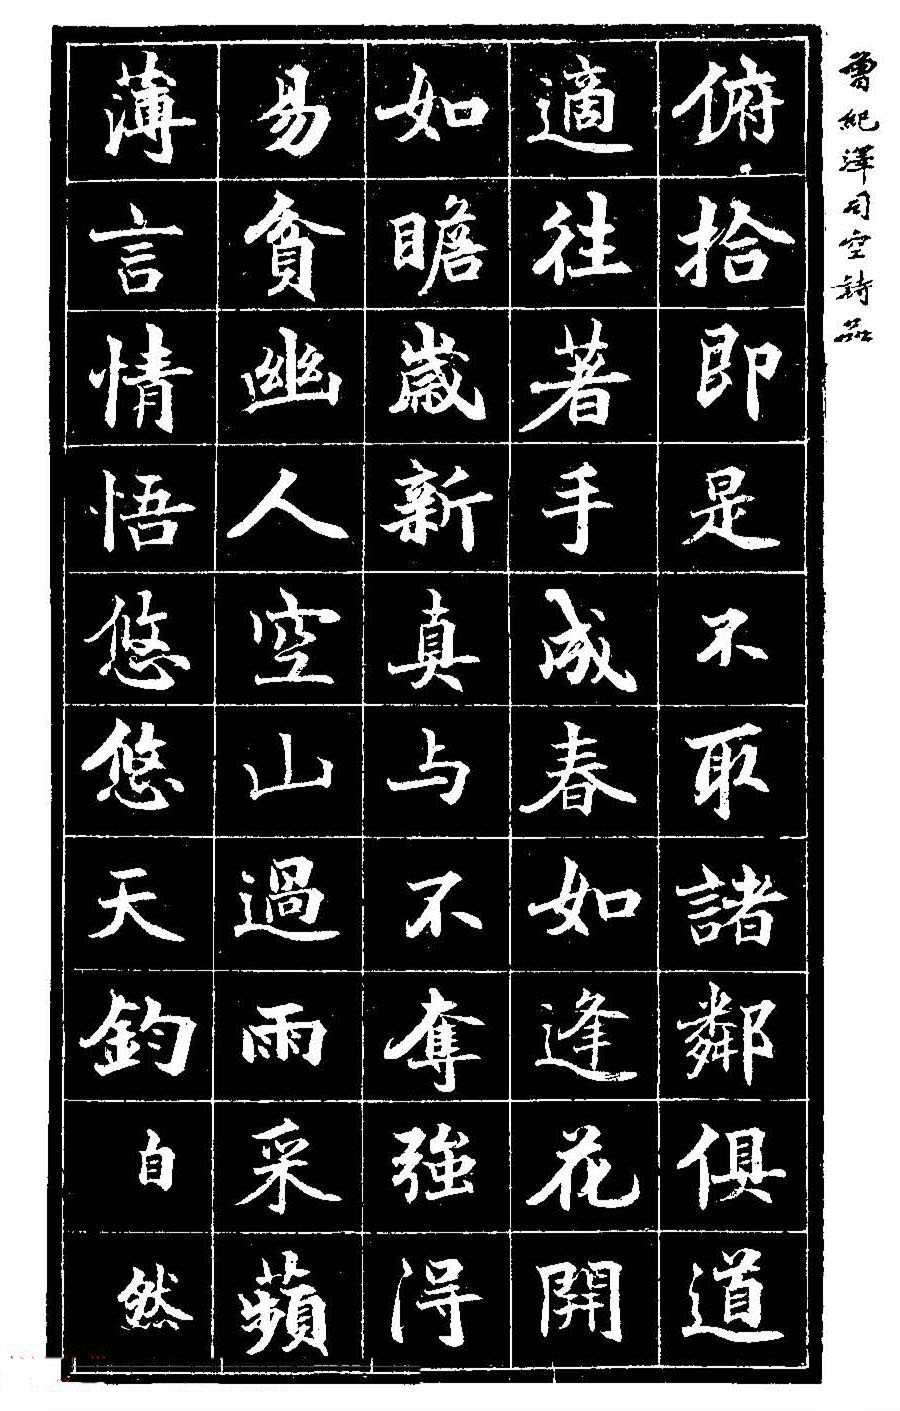 曾紀澤司空詩品
俯拾即是不取諸鄰俱道
適往著手成春如逢花開
如瞻歲新真与不奪強得
易貧幽人空山過雨采蘋
薄言情悟悠悠天鈞自然